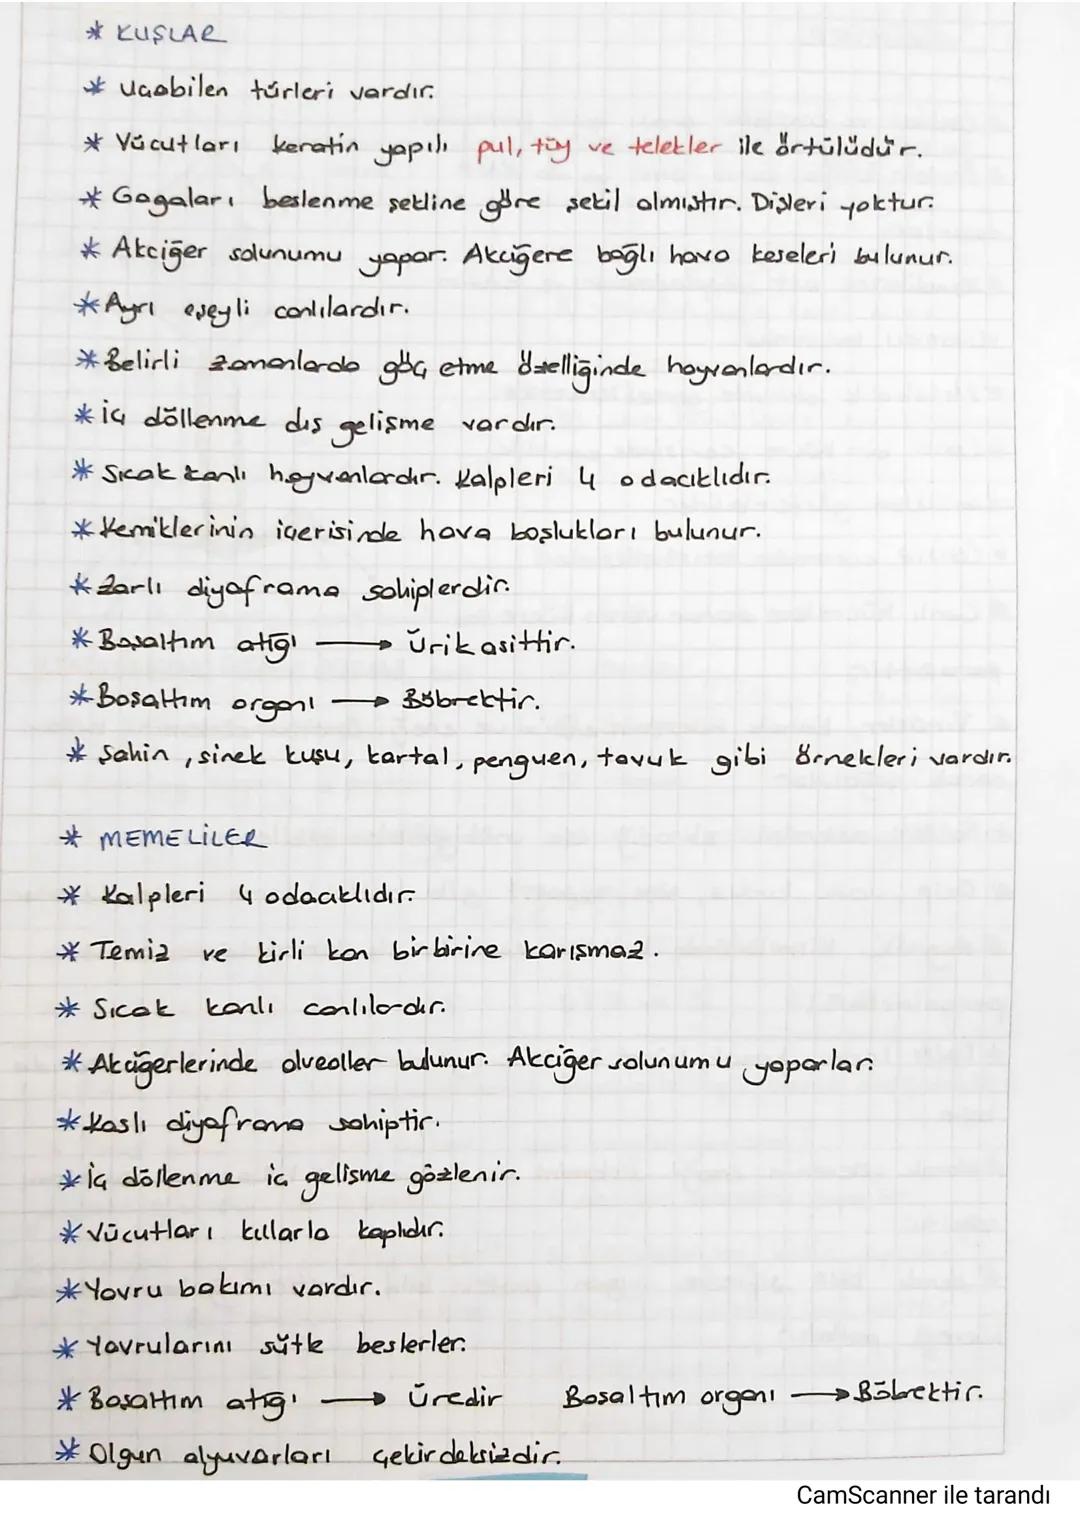 * KUŞLAR
* Uçabilen türleri vardır.
* Vücutları keratin yapılı pul, tüy ve telekler ile örtülüdür.
* Gagaları beslenme şekline göre şekil almıştır. Dişleri yoktur.
* Akciğer solunumu yapar. Akciğere bağlı hava keseleri bulunur.
* Ayrı eşeyli canlılardır.
* Belirli zamanlarda göç etme özelliğinde hayvanlardır.
* İç döllenme dış gelişme vardır.
* Sıcak kanlı hayvanlardır. Kalpleri 4 odacıklıdır.
* Kemiklerinin içerisinde hava boşlukları bulunur.
* Zarlı diyaframa sahiplerdir.
* Boşaltım atığı → Ürik asittir.
* Boşaltım organı → Böbrektir.
* Şahin, sinek kuşu, kartal, penguen, tavuk gibi örnekleri vardır.
* MEMELİLER
* Kalpleri 4 odacıklıdır.
* Temiz ve kirli kan birbirine karışmaz.
* Sıcak kanlı canlılardır.
* Akciğerlerinde alveoller bulunur. Akciğer solunumu yaparlar.
* Kaslı diyaframa sahiptir.
* İç döllenme iç gelişme gözlenir.
* Vücutları kıllarla kaplıdır.
* Yavru bakımı vardır.
* Yavrularını sütle beslerler.
* Boşaltım atığı → Üredir Boşaltım organı → Böbrektir.
* Olgun alyuvarları çekirdeksizdir.
CamScanner ile tarandı